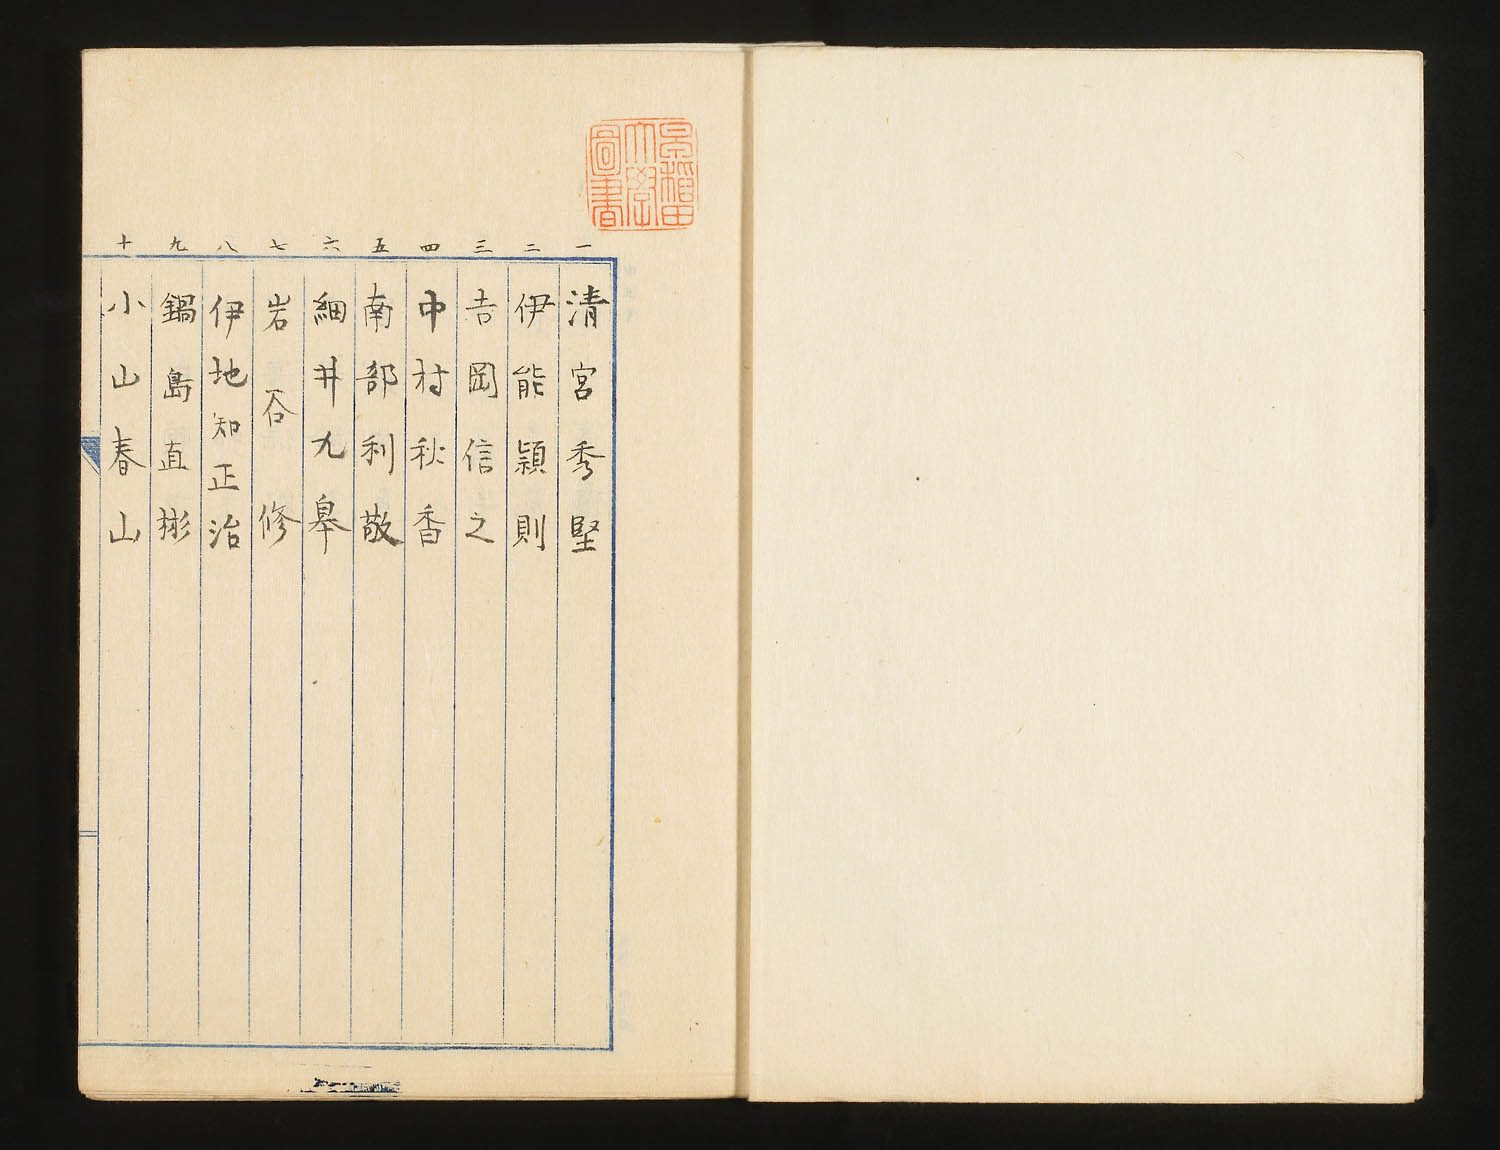 早稲田
大學
圖書
一 清宮秀堅
二 伊能穎則
三 吉岡信之
四 中村秋香
五 南部利敬
六 細井九皋
七 岩谷修
八 伊地知正治
九 鍋島直彬
十 小山春山